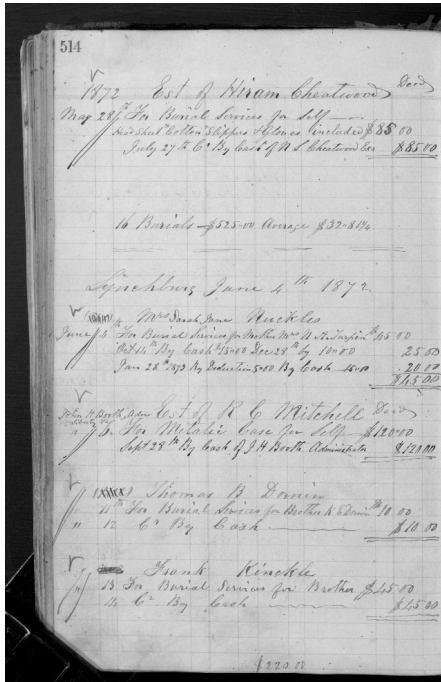 514
1872 Est of Hiram Cheatwood Decd
May 28th For Burial Services for Self
Head Sheet Cotton Slippers & Gloves included $85 00
July 27th Cr By Cash of N L Cheatwood Exr $85 00
16 Burials — $525-00 Average $32-81¼
Lynchburg June 4th 1872
Mrs Sarah Jane Nuckles
June 4th For Burial Services for Mother Mrs N A Turpin $45 00
Oct 14th By Cash $15=00 Dec 28th by 10=00 25 00
Jan 28th 1873 By Deduction 5=00 By Cash 15=00 20 00
$45 00
John H Booth, Adm Est of R C Mitchell Decd
" 10 For Metalic Case for Self $120=00
Sept 28th By Cash of J H Booth Administrator $120 00
Thomas B
" 11th For Burial Services for Brother $10 00
" 12 Cr By Cash $10 00
Frank Kinckle
" 13 For Burial Services for Brother $45 00
14 Cr By Cash $45 00
$220.00